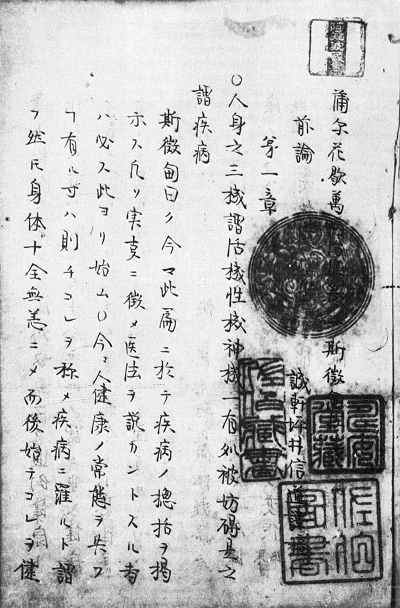 蒲尓花歇萬
斯微
前論
誠軒坪井信道譯
第一章
〇人身之三機謂活機性機神機一有所被妨碍是之
謂疾病
斯微甸曰ク今マ此篇ニ於テ疾病ノ總括ヲ掲
示ス凡ソ実是ニ徴メ医法ヲ説カントスル者
ハ必ス此ヨリ始ム〇今マ人健康ノ常態ヲ失フ
ヿ有ル寸ハ則チコレヲ称メ疾病ニ罹ルト謂
フ然氏身体十全無恙ニメ而後始テコレヲ健